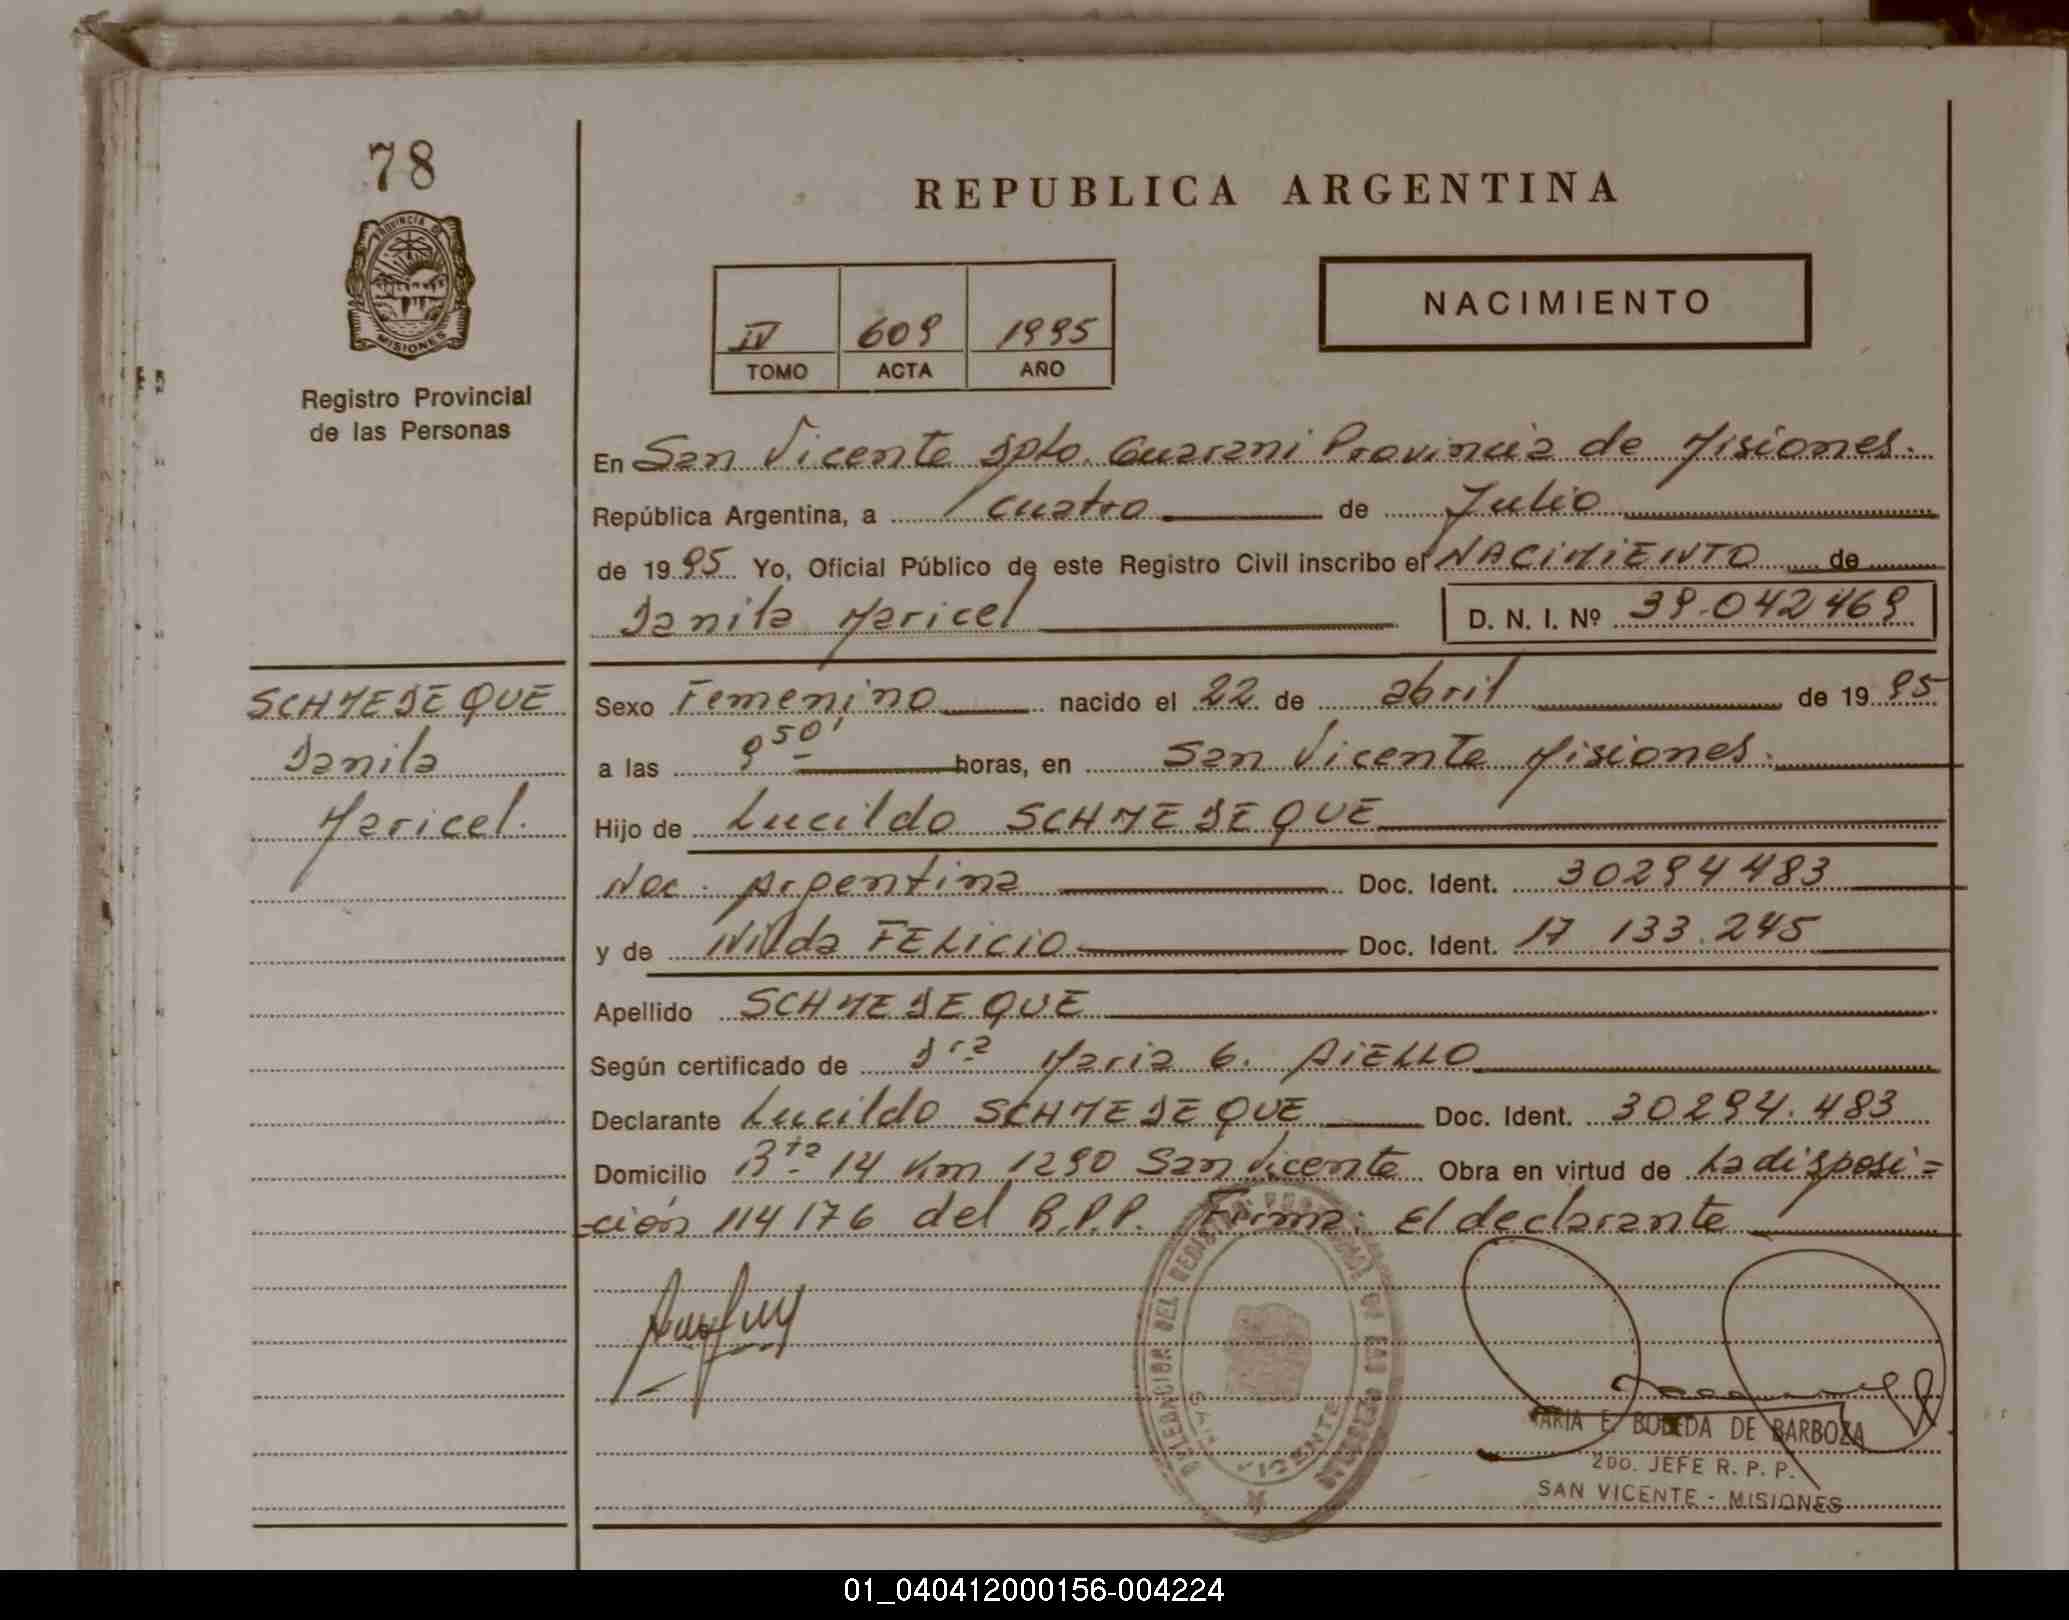 78
REPUBLICA ARGENTINA
PROVINCIA DE
MISIONES
Registro Provincial
de las Personas
IV 609 1995
TOMO ACTA AÑO
NACIMIENTO
En San Vicente Dpto. Guarani Provincia de Misiones.
República Argentina, a cuatro de Julio
de 1995 Yo, Oficial Público de este Registro Civil inscribo el NACIMIENTO de
Danila Maricel D. N. I. Nº 39.042469
SCHMEDEQUE
Danila
Maricel.
Sexo Femenino nacido el 22 de abril de 1995
a las 9 50' horas, en San Vicente Misiones.
Hijo de Lucildo SCHMEDEQUE
Nac. Argentina Doc. Ident. 30294483
y de Nilda FELICIO Doc. Ident. 17 133.245
Apellido SCHMEDEQUE
Según certificado de Dra Maria G. AIELLO
Declarante Lucildo SCHMEDEQUE Doc. Ident. 30294.483
Domicilio Rta 14 Km 1290 San Vicente Obra en virtud de La disposi=
-ción 114176 del R.P.P. Firma: El declarante
SAN VICENTE
MARIA E. BOBEDA DE BARBOZA
2DO. JEFE R. P. P.
SAN VICENTE - MISIONES
01_040412000156-004224